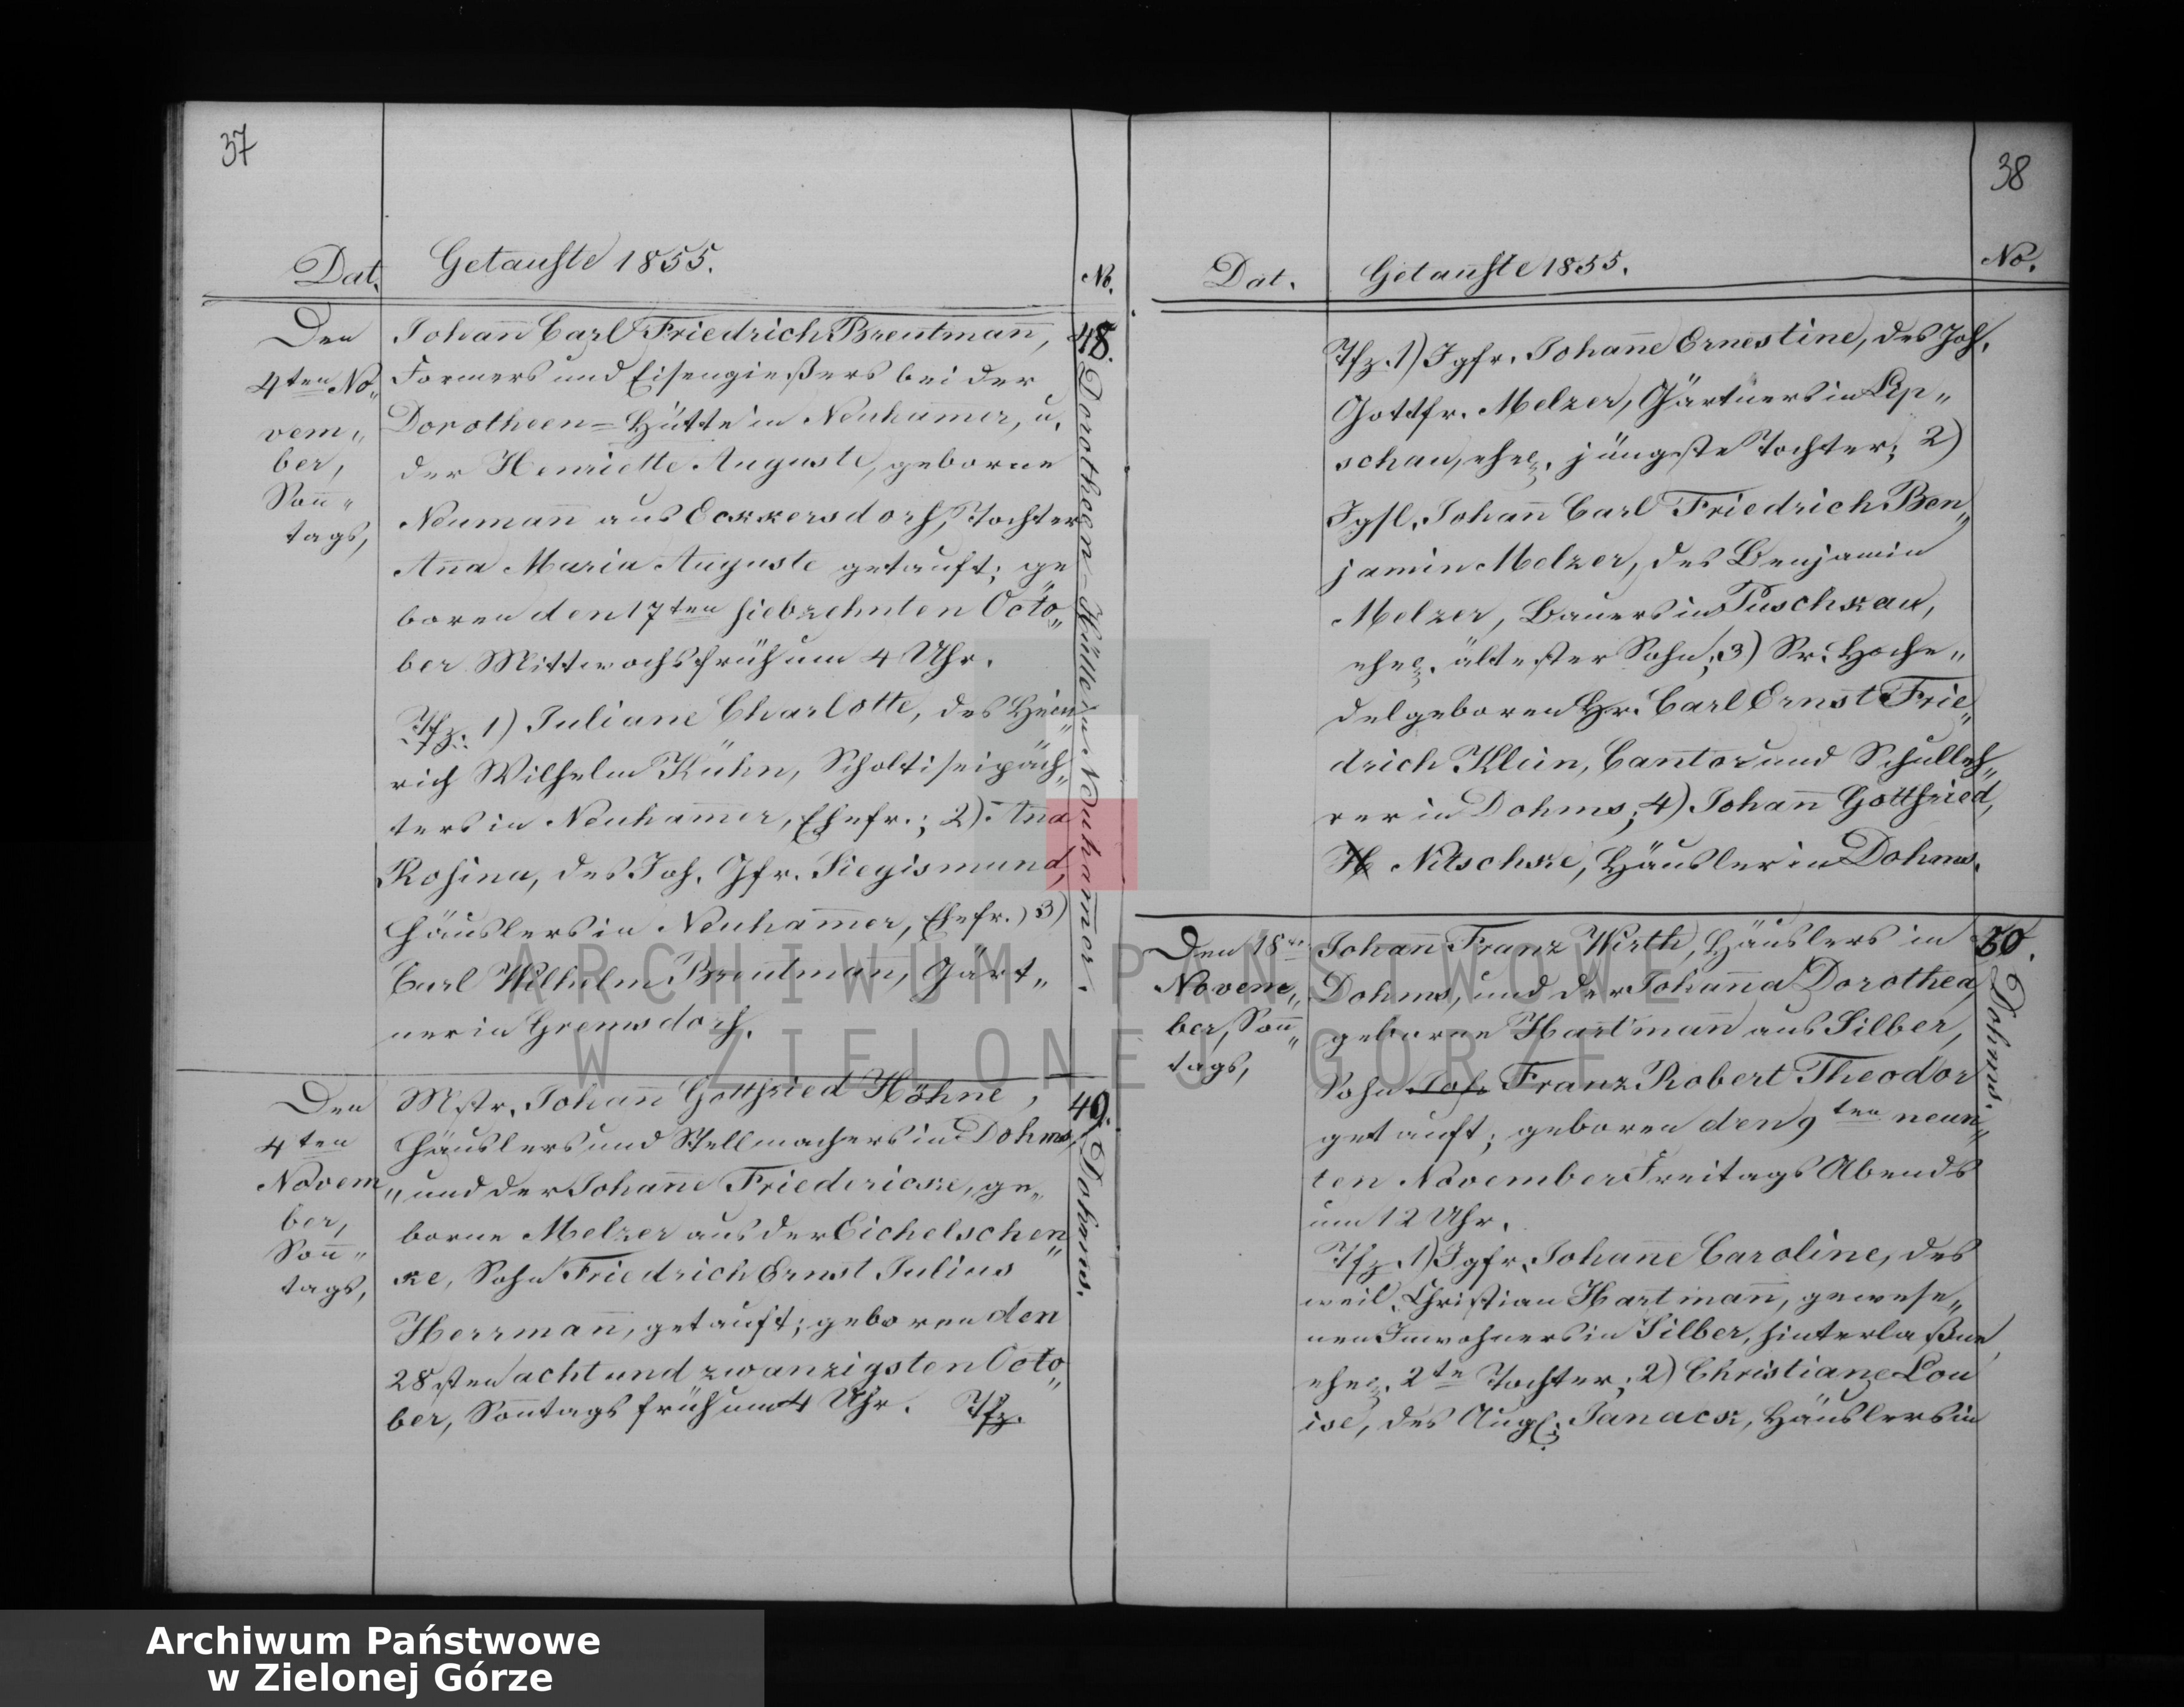 37
Dat.
Getaufte 1855.
No.
Den
4ten No„
vem„
ber,
Soñ„
tags,
Johañ Carl Friedrich Breutmañ,
Formers und Eisengießers bei der
Dorotheen=Hütte in Neuham̄er, u.
der Henriette Auguste, geborne
Neumañ aus Eckkersdorf, Tochter
Aña Maria Auguste getauft; ge„
boren den 17ten siebzehnten Octo„
ber Mittwochs früh um 4 Uhr.
Tfz. 1) Juliane Charlotte, des Hein„
rich Wilhelm Kühn, Scholtiseipäch„
ters in Neuham̄er, Ehefr.; 2) Aña
Rosina, des Joh. Gfr. Siegismund,
Häuslers in Neuham̄er, Ehefr.; 3)
Carl Wilhelm Breutmañ, Gärt„
ner in Gremsdorf.
48.
Dorotheen-Hütte in Neuham̄er.
Den
4ten
Novem„
ber,
Soñ„
tags,
Mstr. Johañ Gottfried Höhne,
Häuslers und Stellmachers in Dohms,
und der Johañe Friedericke, ge„
borne Melzer aus der Eichelschen„
ke, Sohn Friedrich Ernst Julius
Herrmañ, getauft; geboren den
28sten acht und zwanzigsten Octo„
ber, Soñtags früh um 4 Uhr. Tfz.
49.
Dohms.
38
Dat.
Getaufte 1855.
No.
Tfz. 1) Jgfr. Johañe Ernestine, des Joh.
Gottfr. Melzer, Gärtners in Lip„
schau, ehel. jüngste Tochter; 2)
Jgsl. Johañ Carl Friedrich Ben„
jamin Melzer, des Benjamin
Melzer, Bauers in Puschkau,
ehel. ältester Sohn; 3) Sr. Hoche„
delgeboren Hr. Carl Ernst Frie„
drich Klein, Cantor und Schulleh„
rer in Dohms; 4) Johañ Gottfried
Nitschke, Häusler in Dohms.
Den 18ten
Novem„
ber, Soñ„
tags,
Johañ Franz Wirth, Häuslers in
Dohms, und der Johaña Dorothea,
geborne Hartmañ aus Silber,
Sohn Joh. Franz Robert Theodor
getauft; geboren den 9ten neun„
ten November Freitags Abends
um 12 Uhr.
Tfz. 1) Jgfr. Johañe Caroline, des
weil. Christian Hartmañ, gewese„
nen Inwohners in Silber, hinterlaßne
ehel. 2te Tochter; 2) Christiane Lou
ise, des Aug. Janack, Häuslers in
50.
Dohms.
ARCHIWUM PAŃSTWOWE
W ZIELONEJ GÓRZE
Archiwum Państwowe
w Zielonej Górze